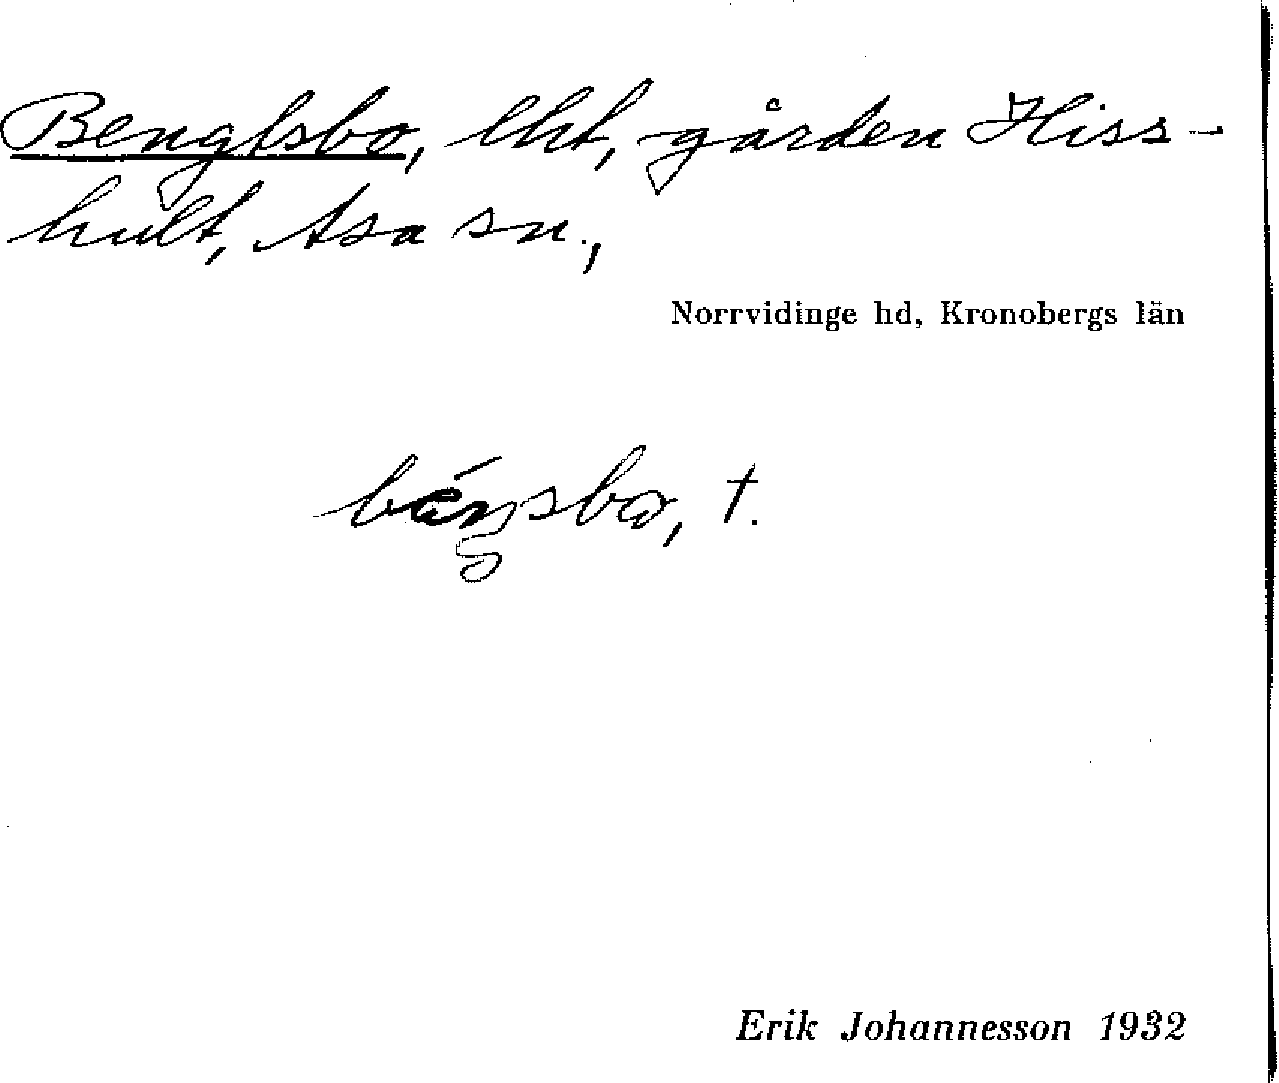 Bengtsbo, lht, gården Hiss-
hult, Asa sn.,
Norrvidinge hd, Kronobergs län
béŋsbo, †.
Erik Johannesson 1932